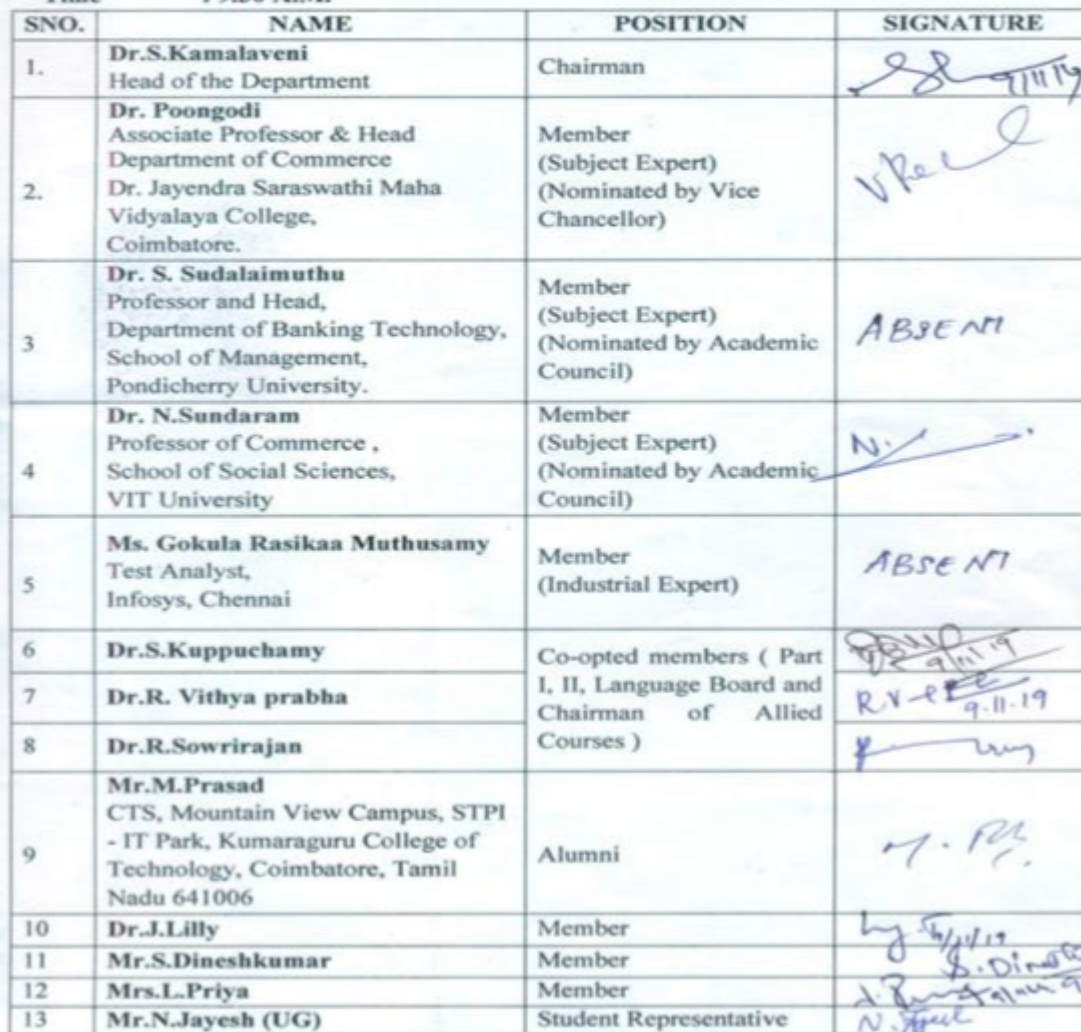 SNO. NAME POSITION SIGNATURE
1. Dr.S.Kamalaveni
Head of the Department
Chairman
9/11/19
2. Dr. Poongodi
Associate Professor & Head
Department of Commerce
Dr. Jayendra Saraswathi Maha
Vidyalaya College,
Coimbatore.
Member
(Subject Expert)
(Nominated by Vice
Chancellor)
3 Dr. S. Sudalaimuthu
Professor and Head,
Department of Banking Technology,
School of Management,
Pondicherry University.
Member
(Subject Expert)
(Nominated by Academic
Council)
ABSENT
4 Dr. N.Sundaram
Professor of Commerce ,
School of Social Sciences,
VIT University
Member
(Subject Expert)
(Nominated by Academic
Council)
N.
5 Ms. Gokula Rasikaa Muthusamy
Test Analyst,
Infosys, Chennai
Member
(Industrial Expert)
ABSENT
6 Dr.S.Kuppuchamy
9/11/19
7 Dr.R. Vithya prabha
9.11.19
8 Dr.R.Sowrirajan
Co-opted members ( Part
I, II, Language Board and
Chairman of Allied
Courses )
9 Mr.M.Prasad
CTS, Mountain View Campus, STPI
- IT Park, Kumaraguru College of
Technology, Coimbatore, Tamil
Nadu 641006
Alumni
10 Dr.J.Lilly Member
11 Mr.S.Dineshkumar Member
12 Mrs.L.Priya Member
13 Mr.N.Jayesh (UG) Student Representative